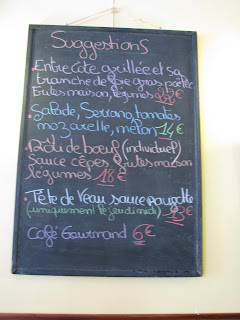 Suggestions
. Entrecôte grillée et sa
tranche de foie gras poêlée
Frites maison, légumes 22€
. Salade, Serrano, tomates
mozzarelle, melon 14€
. Rôti de bœuf (individuel)
Sauce cèpes frites maison
légumes 18€
. Tête de Veau sauce
(uniquement le jeudi midi) 13€
Café Gourmand 6€